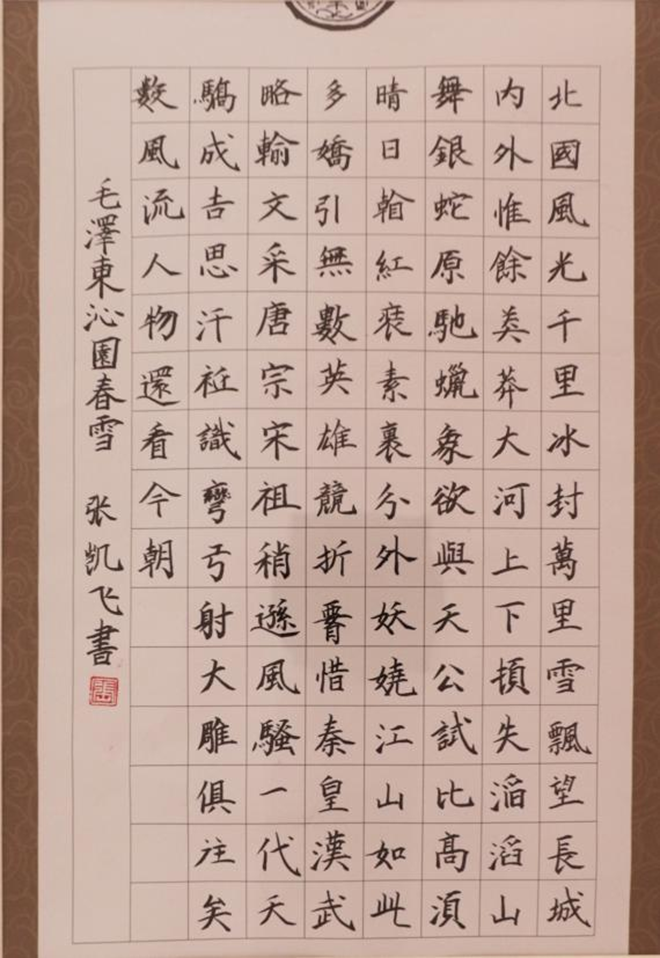 北國風光千里冰封萬里雪飄望長城
内外惟餘莽莽大河上下頓失滔滔山
舞銀蛇原馳蠟象欲與天公試比高須
晴日看紅裝素裹分外妖嬈江山如此
多嬌引無數英雄競折腰惜秦皇漢武
略輸文采唐宗宋祖稍遜風騷一代天
驕成吉思汗祗識彎弓射大雕俱往矣
數風流人物還看今朝
毛澤東沁園春雪 张凯飞書